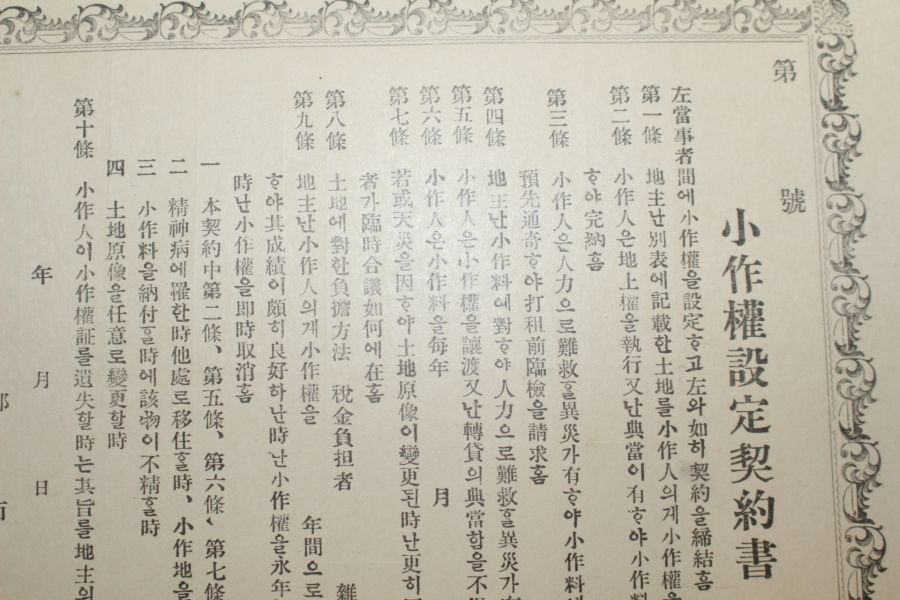 第 號
小作權設定契約書
左當事者間에小作權을設定ᄒᆞ고左와如히契約을締結홈
第一條 地主난別表에記載한土地를小作人의게小作權을
第二條 小作人은地上權을執行又난典當이有ᄒᆞ야小作料
ᄒᆞ야完納홈
第三條 小作人은人力으로難救ᄒᆞᆯ異災가有ᄒᆞ야小作料
預先通奇ᄒᆞ야打租前臨檢을請求홈
第四條 地主난小作料에對ᄒᆞ야人力으로難救ᄒᆞᆯ異災가
第五條 小作人은小作權을讓渡又난轉貸의典當함을不
第六條 小作人은小作料을每年 月
第七條 若或天災을因ᄒᆞ야土地原像이變更된時난更히
者가臨時合議如何에在홈
第八條 土地에對한負擔方法 稅金負担者 雜
第九條 地主난小作人의게小作權을 年間으로
ᄒᆞ야其成績이頗히良好하난時난小作權을永年
時난小作權을即時取消홈
一 本契約中第二條、第五條、第六條、第七條
二 精神病에罹한時他處로移住ᄒᆞᆯ時、小作地을
三 小作料을納付ᄒᆞᆯ時에該物이不精ᄒᆞᆯ時
四 土地原像을任意로變更할時
第十條 小作人이小作權証를遺失할時는其旨를地主의
年 月 日